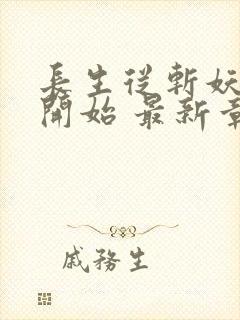 長生從斬妖
開始 最新章
戚務生